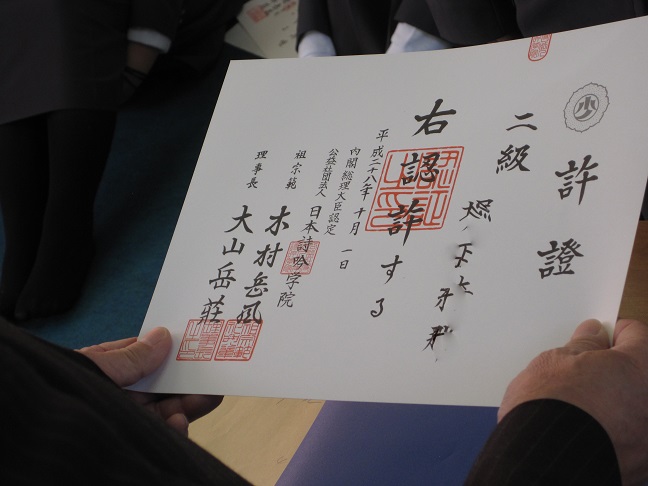 許證
二級
右認許する
平成二十八年十月一日
内閣総理大臣認定
公益社団法人 日本詩吟学院
祖宗範 木村岳風
理事長 大山岳荘
少